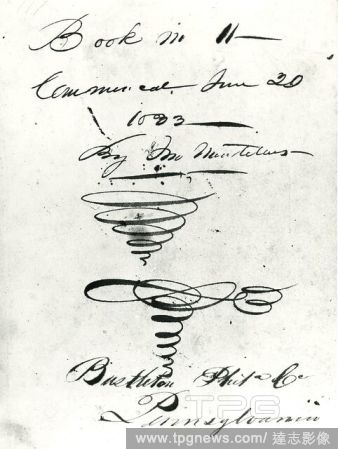 Book in 11
Commenced June 20
By
Bustleton Phila Co
Pennsylvania
TPG
www.tpgnews.com/達志影像